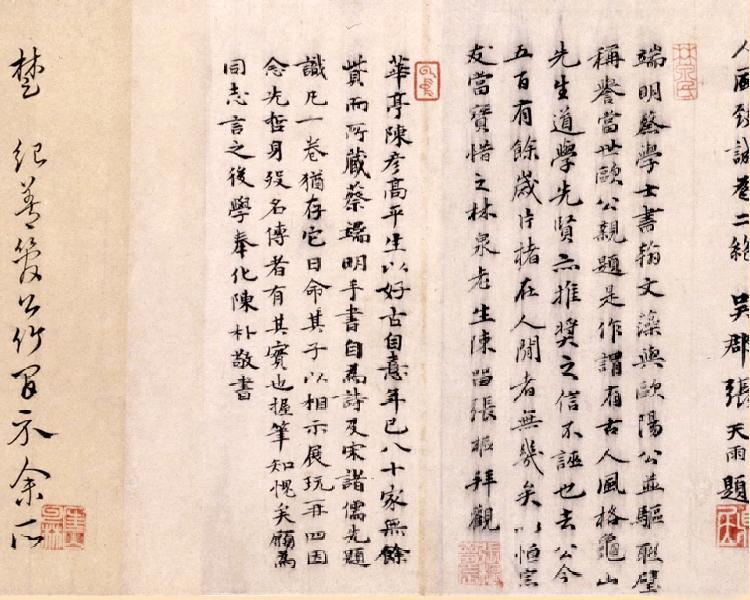 人風致誠卷二絕 吳郡張天雨題
端明蔡學士書翰文藻與歐陽公並驅聯璧
稱譽當世歐公親題是作謂有古人風格龜山
先生道學先賢亦推獎之信不誣也去公今
五百有餘歲片楮在人間者無幾矣以恒家
友當寶惜之林泉老生陳 張樞拜觀
華亭陳彥高平生以好古自意年已八十家無餘
貲而所藏蔡端明手書自為詩及宋諸儒先題
識凡一卷猶存它日命其子以相示展玩再四因
念先哲身歿名傳者有其實也握筆知愧矣願為
同志言之後學奉化陳朴敬書
楚 紀善筠公竹 示余